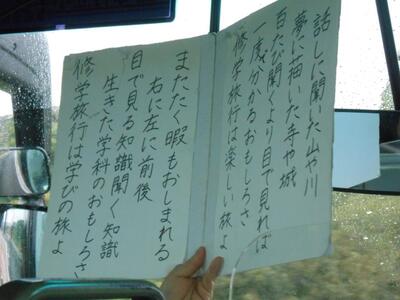 話しに聞いた山や川
夢に描いた寺や城
百たび聞くより目で見れば
一度で分かるおもしろさ
修学旅行は楽しい旅よ
またたく暇もおしまれる
右に左に前後
目で見る知識聞く知識
生きた学科のおもしろさ
修学旅行は学びの旅よ